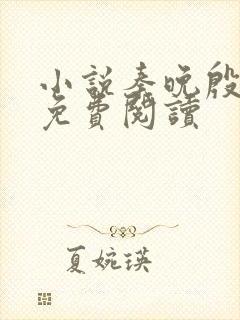 小說秦晚殷
免費閱讀
夏婉瑛